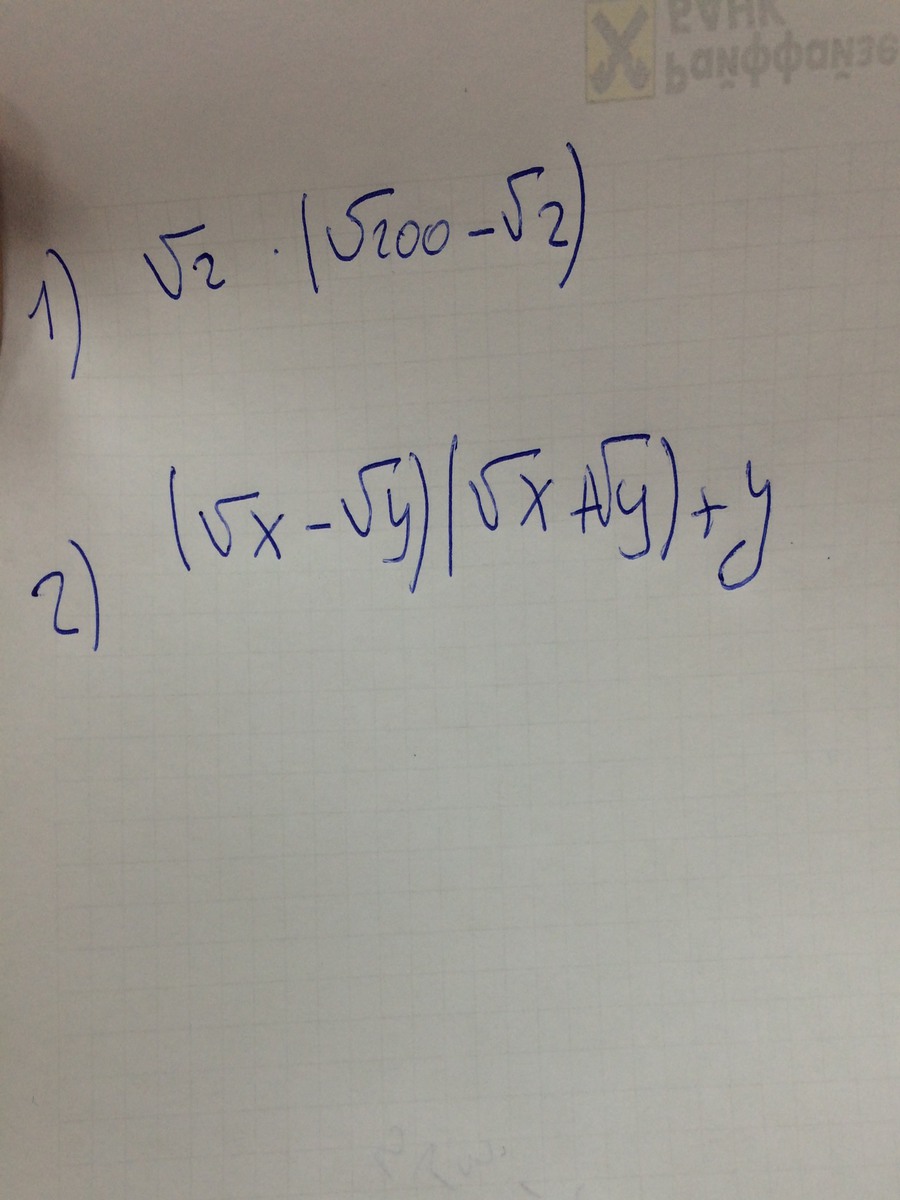 БАНК
Райффайзе
1) √2 · (√200 - √2)
2) (√x - √y)(√x + √y) + y